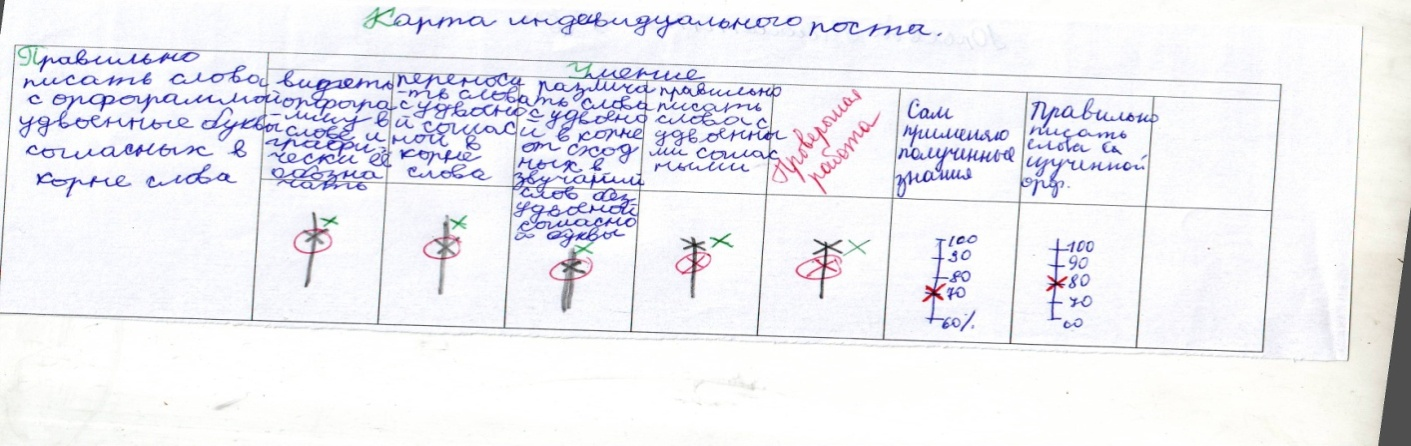 Карта индивидуального поста.
Правильно
писать слова
с орфограммой
удвоенные буквы
согласных в
корне слова
Умение
видеть
орфогра
-мму в
слове и
графи-
чески её
обозна
чать
переноси
-ть слова
с удвоенно
й соглас
ной в
корне
слова
различа
ть слова
с удвоенно
й в корне
от сход
ных в
звучании
слов без
удвоеной
согласно
й буквы
правильно
писать
слова с
удвоенны
ми соглас
ными
Проверочная
работа
Сам
применяю
полученные
знания
Правильно
писать
слова с
изученной
орф.
100
90
80
70
60%
100
90
80
70
60